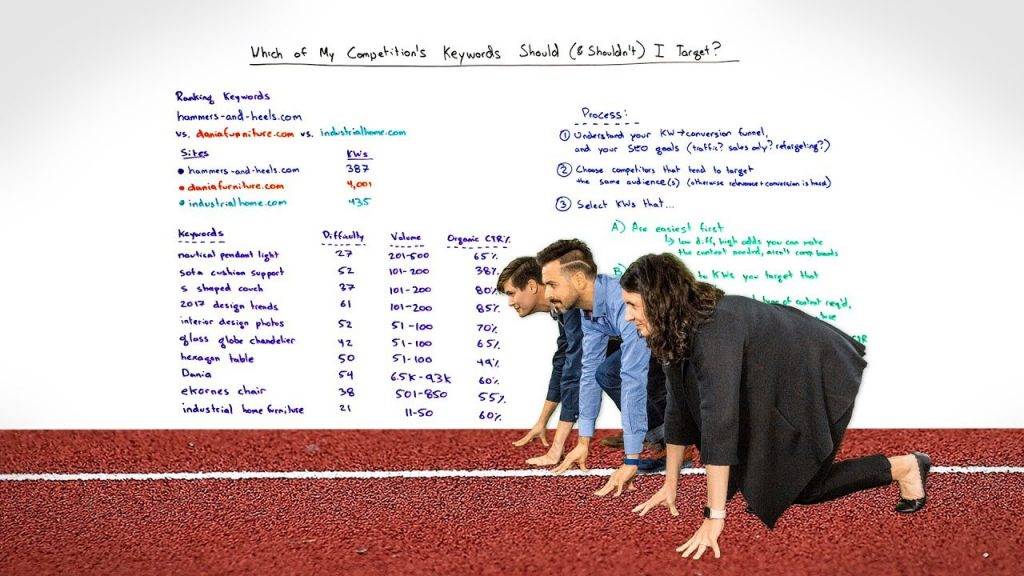 Which of My Competition's Keywords Should (& Shouldn't) I Target?
Ranking Keywords
hammers-and-heels.com
vs. daniafurniture.com vs. industrialhome.com
Sites KWs
hammers-and-heels.com 387
daniafurniture.com 4,001
industrialhome.com 435
Keywords Difficulty Volume Organic CTR%
nautical pendant light 27 201-500 65%
sofa cushion support 52 101-200 38%
s shaped couch 37 101-200 80%
2017 design trends 61 101-200 85%
interior design photos 52 51-100 70%
glass globe chandelier 42 51-100 65%
hexagon table 50 51-100 49%
Dania 54 6.5K-9.3K 60%
ekornes chair 38 501-850 55%
industrial home furniture 21 11-50 60%
Process:
① Understand your KW→conversion funnel,
and your SEO goals (traffic? sales only? retargeting?)
② Choose competitors that tend to target
the same audience(s) (otherwise relevance + conversion is hard)
③ Select KWs that...
A) Are easiest first
↳ low diff, high odds you can make
the content needed, aren't comp brands
B)
to KWs you target that
of content req'd,